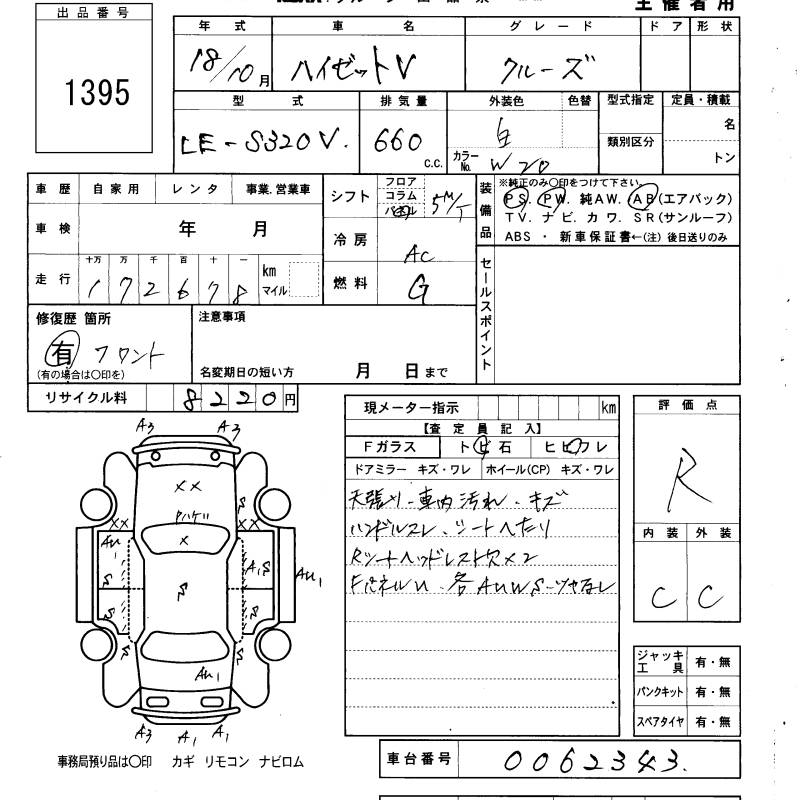 主催者用
出品番号
1395
年式 車名 グレード ドア 形状
18/10月 ハイゼットV クルーズ
型式 排気量 外装色 色替 型式指定 定員・積載
LE-S320V. 660 c.c. 白 類別区分 名
カラーNo. W20 トン
車歴 自家用 レンタ 事業.営業車
車検 年 月
走行 十万 万 千 百 十 一
172678 km マイル
シフト フロア コラム パネル 5M/T
冷房 AC
燃料 G
装備品 ※純正のみ○印をつけて下さい。
PS. PW. 純AW. AB(エアバック)
TV. ナビ. カワ. SR(サンルーフ)
ABS ・ 新車保証書←(注) 後日送りのみ
セールスポイント
修復歴 箇所
有 フロント
(有の場合は○印を)
注意事項
名変期日の短い方 月 日まで
リサイクル料 8220円
現メーター指示 km
【査定員記入】
Fガラス トビ石 ヒビワレ
ドアミラー キズ・ワレ ホイール(CP) キズ・ワレ
天張り・車内汚れ・キズ
ハンドルスレ、シートへたり
Rシートヘッドレスト欠×2
FパネルU・各AUWS・ツヤなし
評価点
R
内装 外装
C C
ジャッキ工具 有・無
パンクキット 有・無
スペアタイヤ 有・無
A3 A3
××
ハゲ
×
×× ××
AU1 A1S AU1
S S S S S S S
AU1
A3 A1 A1
事務局預り品は○印 カギ リモコン ナビロム
車台番号 0062343.